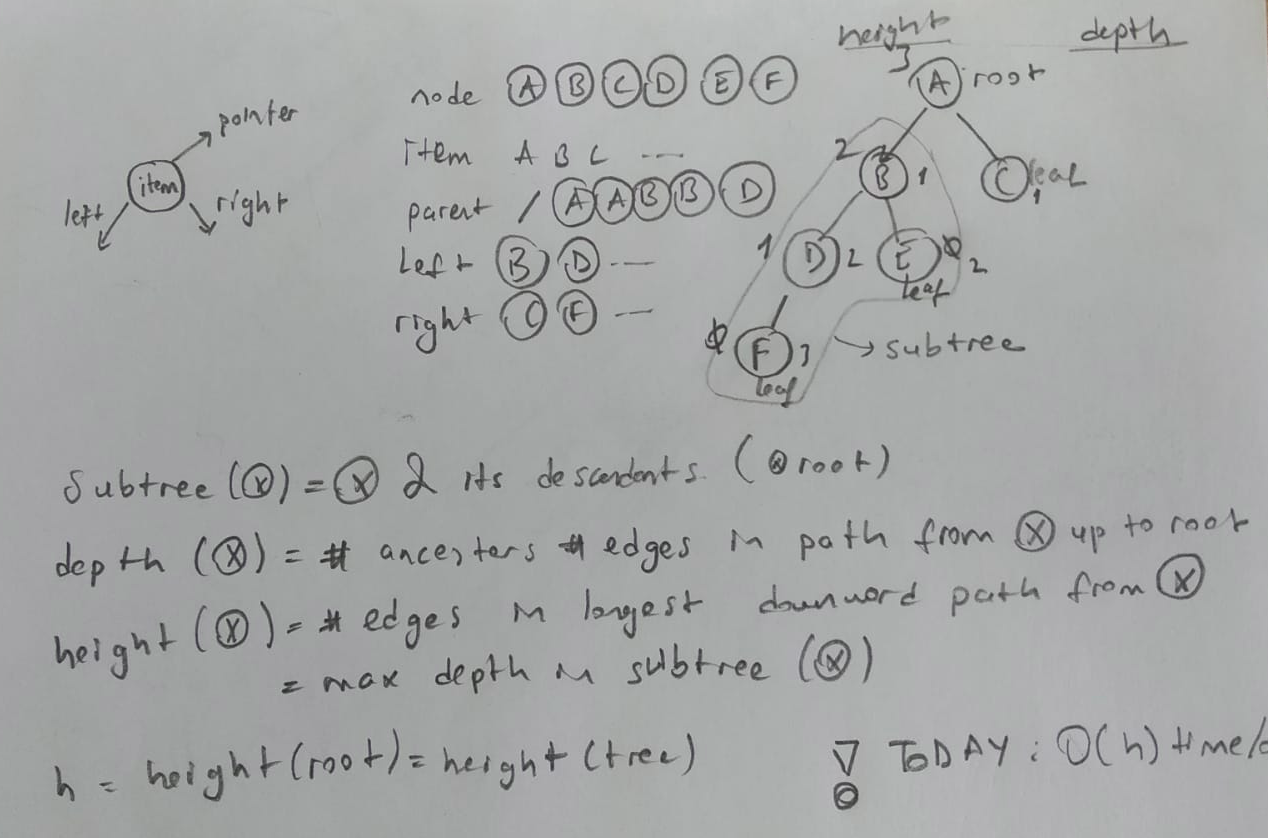 height depth
3
A root
pointer
item
left right
node A B C D E F
item A B C ---
parent / A A B B D
Left B D ---
right C E ---
2 B 1
C leaf
1
1 D 2
E 0 2
leaf
0 F 3
leaf
→ subtree
Subtree (X) = X & its descendents. (X root)
depth (X) = # ancesters # edges in path from X up to root
height (X) = # edges in longest downword path from X
= max depth in subtree (X)
h = height (root) = height (tree)
! TODAY : O(h) time/